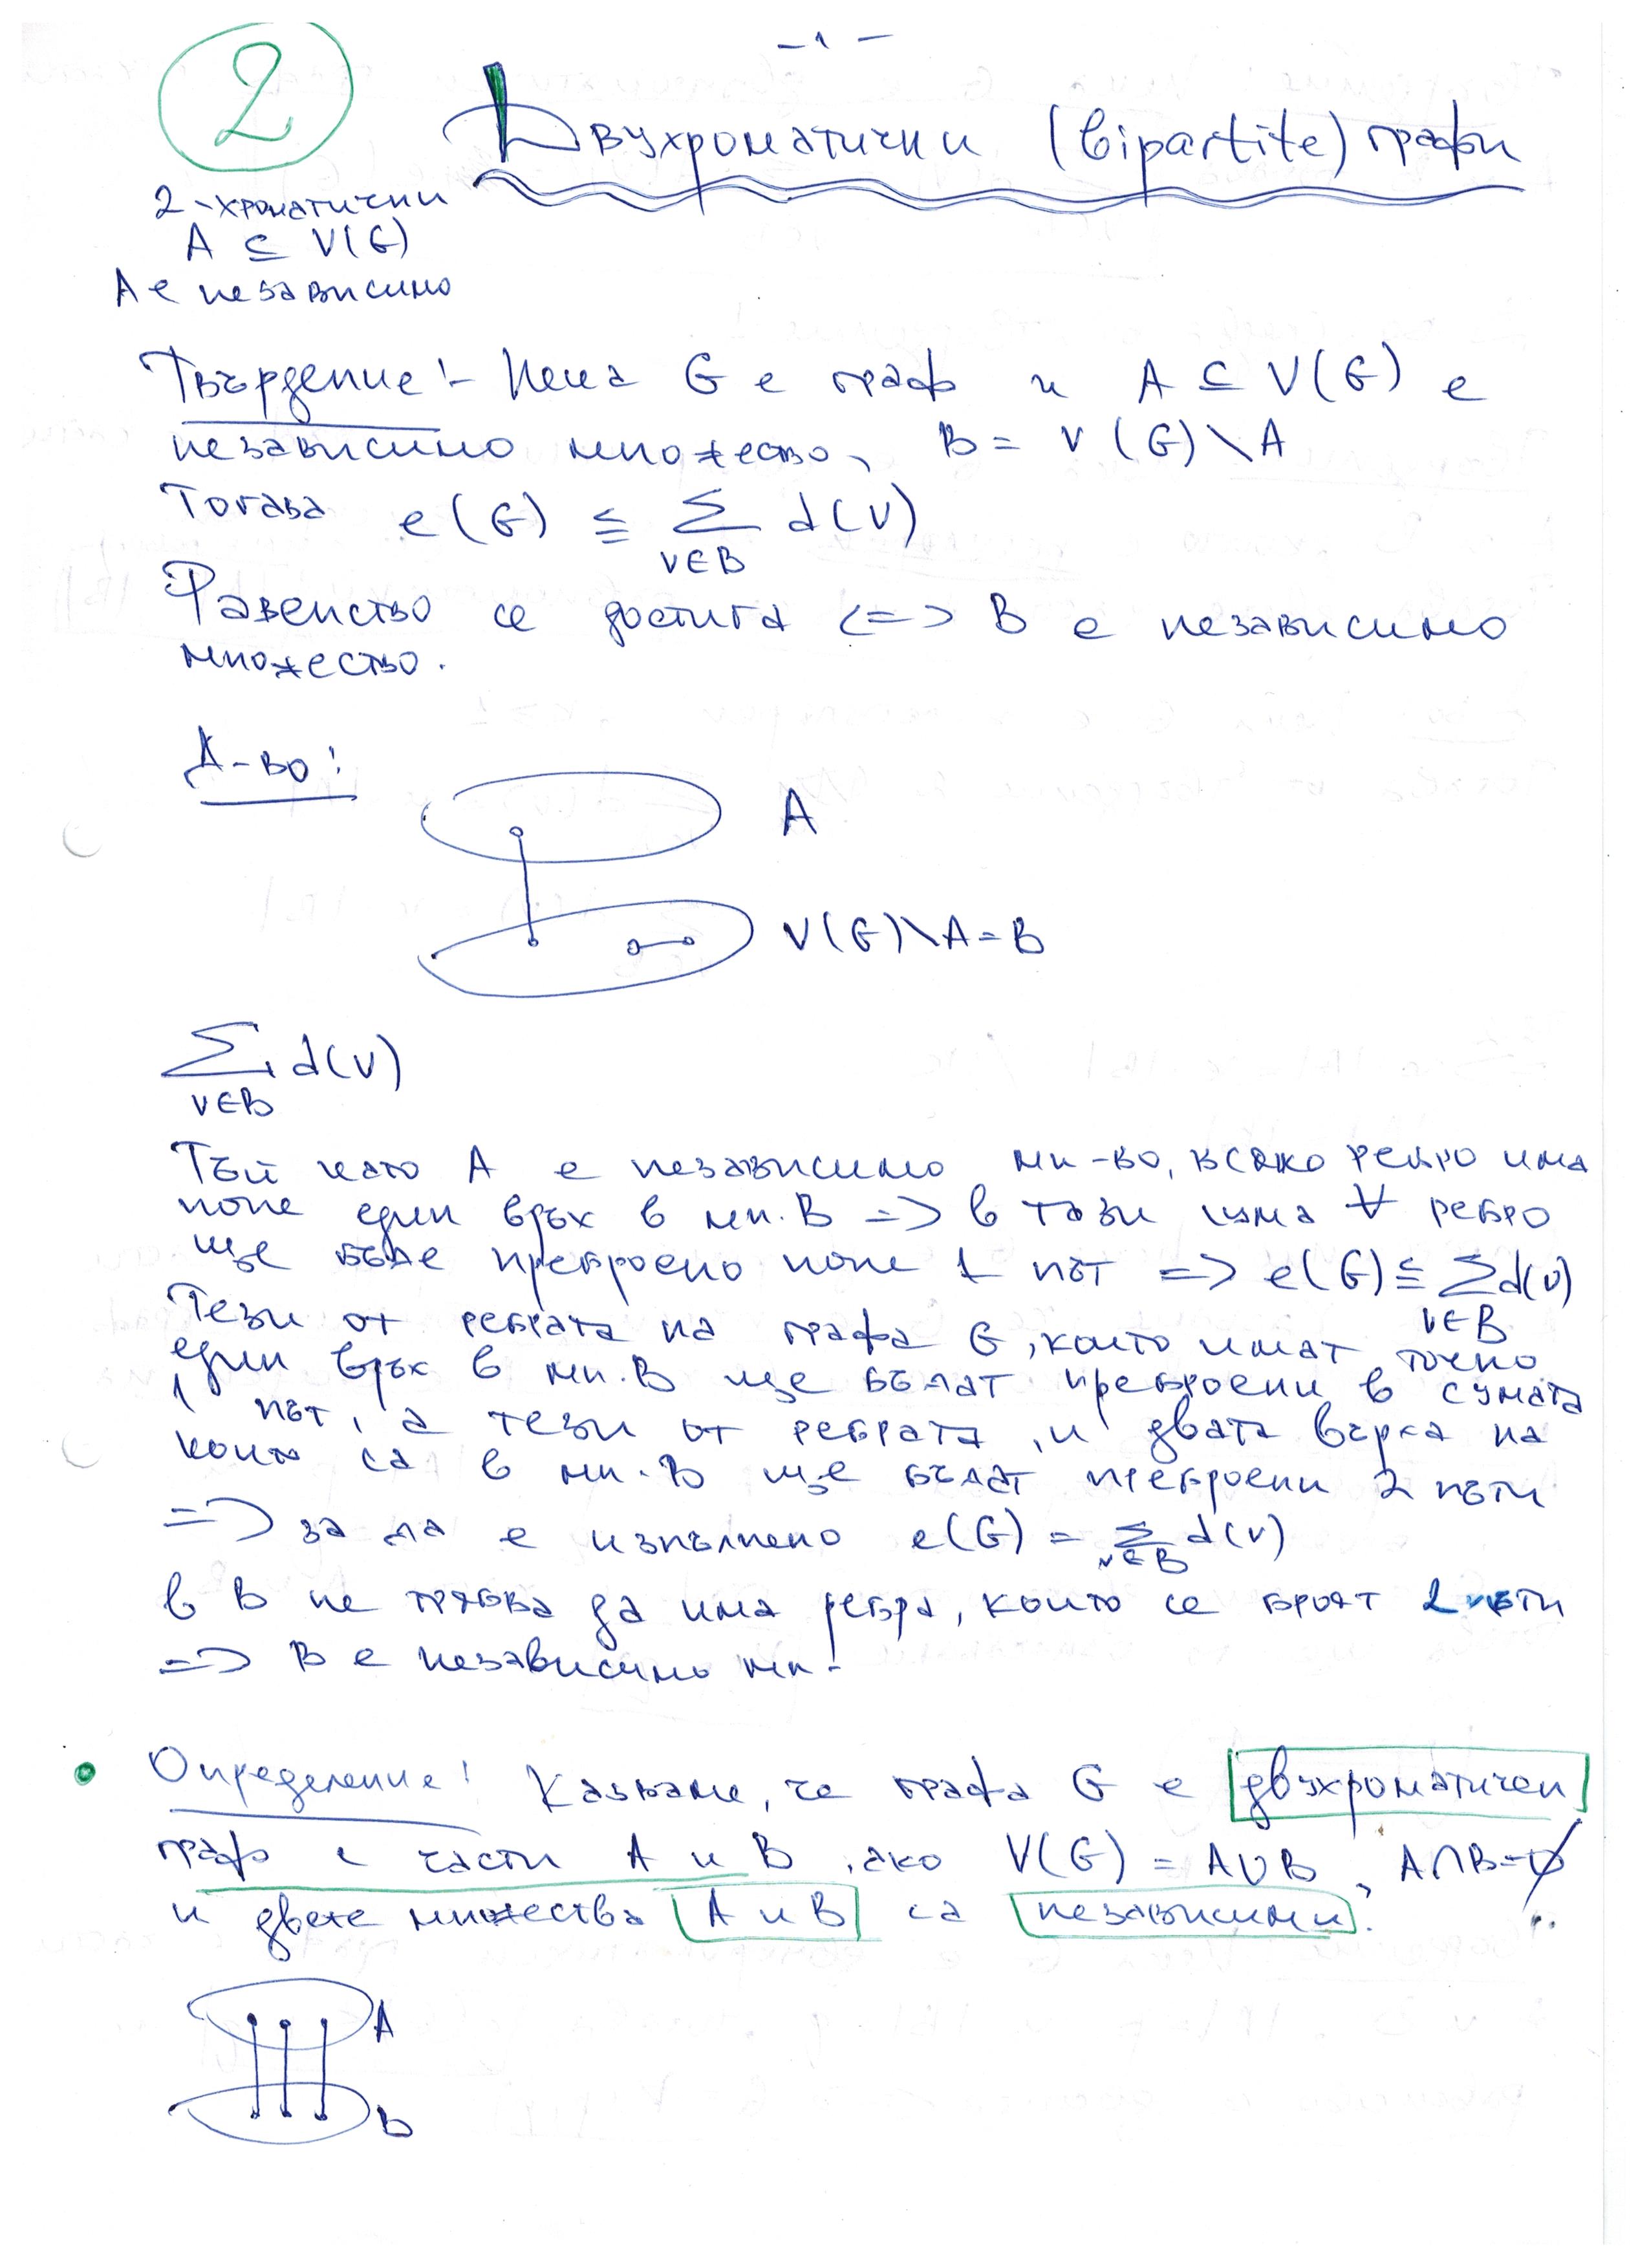 - 1 -
2
Двухроматични (bipartite) графи
2-хроматични
A ⊆ V(G)
A е независимо
Твърдение:- Нека G е граф и A ⊆ V(G) е
независимо множество, B = V(G)\A
Тогава e(G) ≦ ∑ d(v)
v∈B
Равенство се достига <=> B е независимо
множество.
Д-во:
A
V(G)\A=B
∑ d(v)
v∈B
Тъй като A е независимо мн-во, всяко ребро има
поне един връх в мн. B => в тази сума ∀ ребро
ще бъде преброено поне 1 път => e(G) ≦ ∑d(v)
v∈B
Тези от ребрата на графа G, които имат точно
един връх в мн. B ще бъдат преброени в сумата
1 път, а тези от ребрата, и двата върха на
които са в мн. B ще бъдат преброени 2 пъти
=> за да е изпълнено e(G) = ∑ d(v)
v∈B
в B не трябва да има ребра, които се броят 2 пъти
=> B е независимо мн.
Определение: Казваме, че графа G е двухроматичен
граф с части A и B, ако V(G) = A∪B, A∩B=∅
и двете множества A и B са независими.
A
B